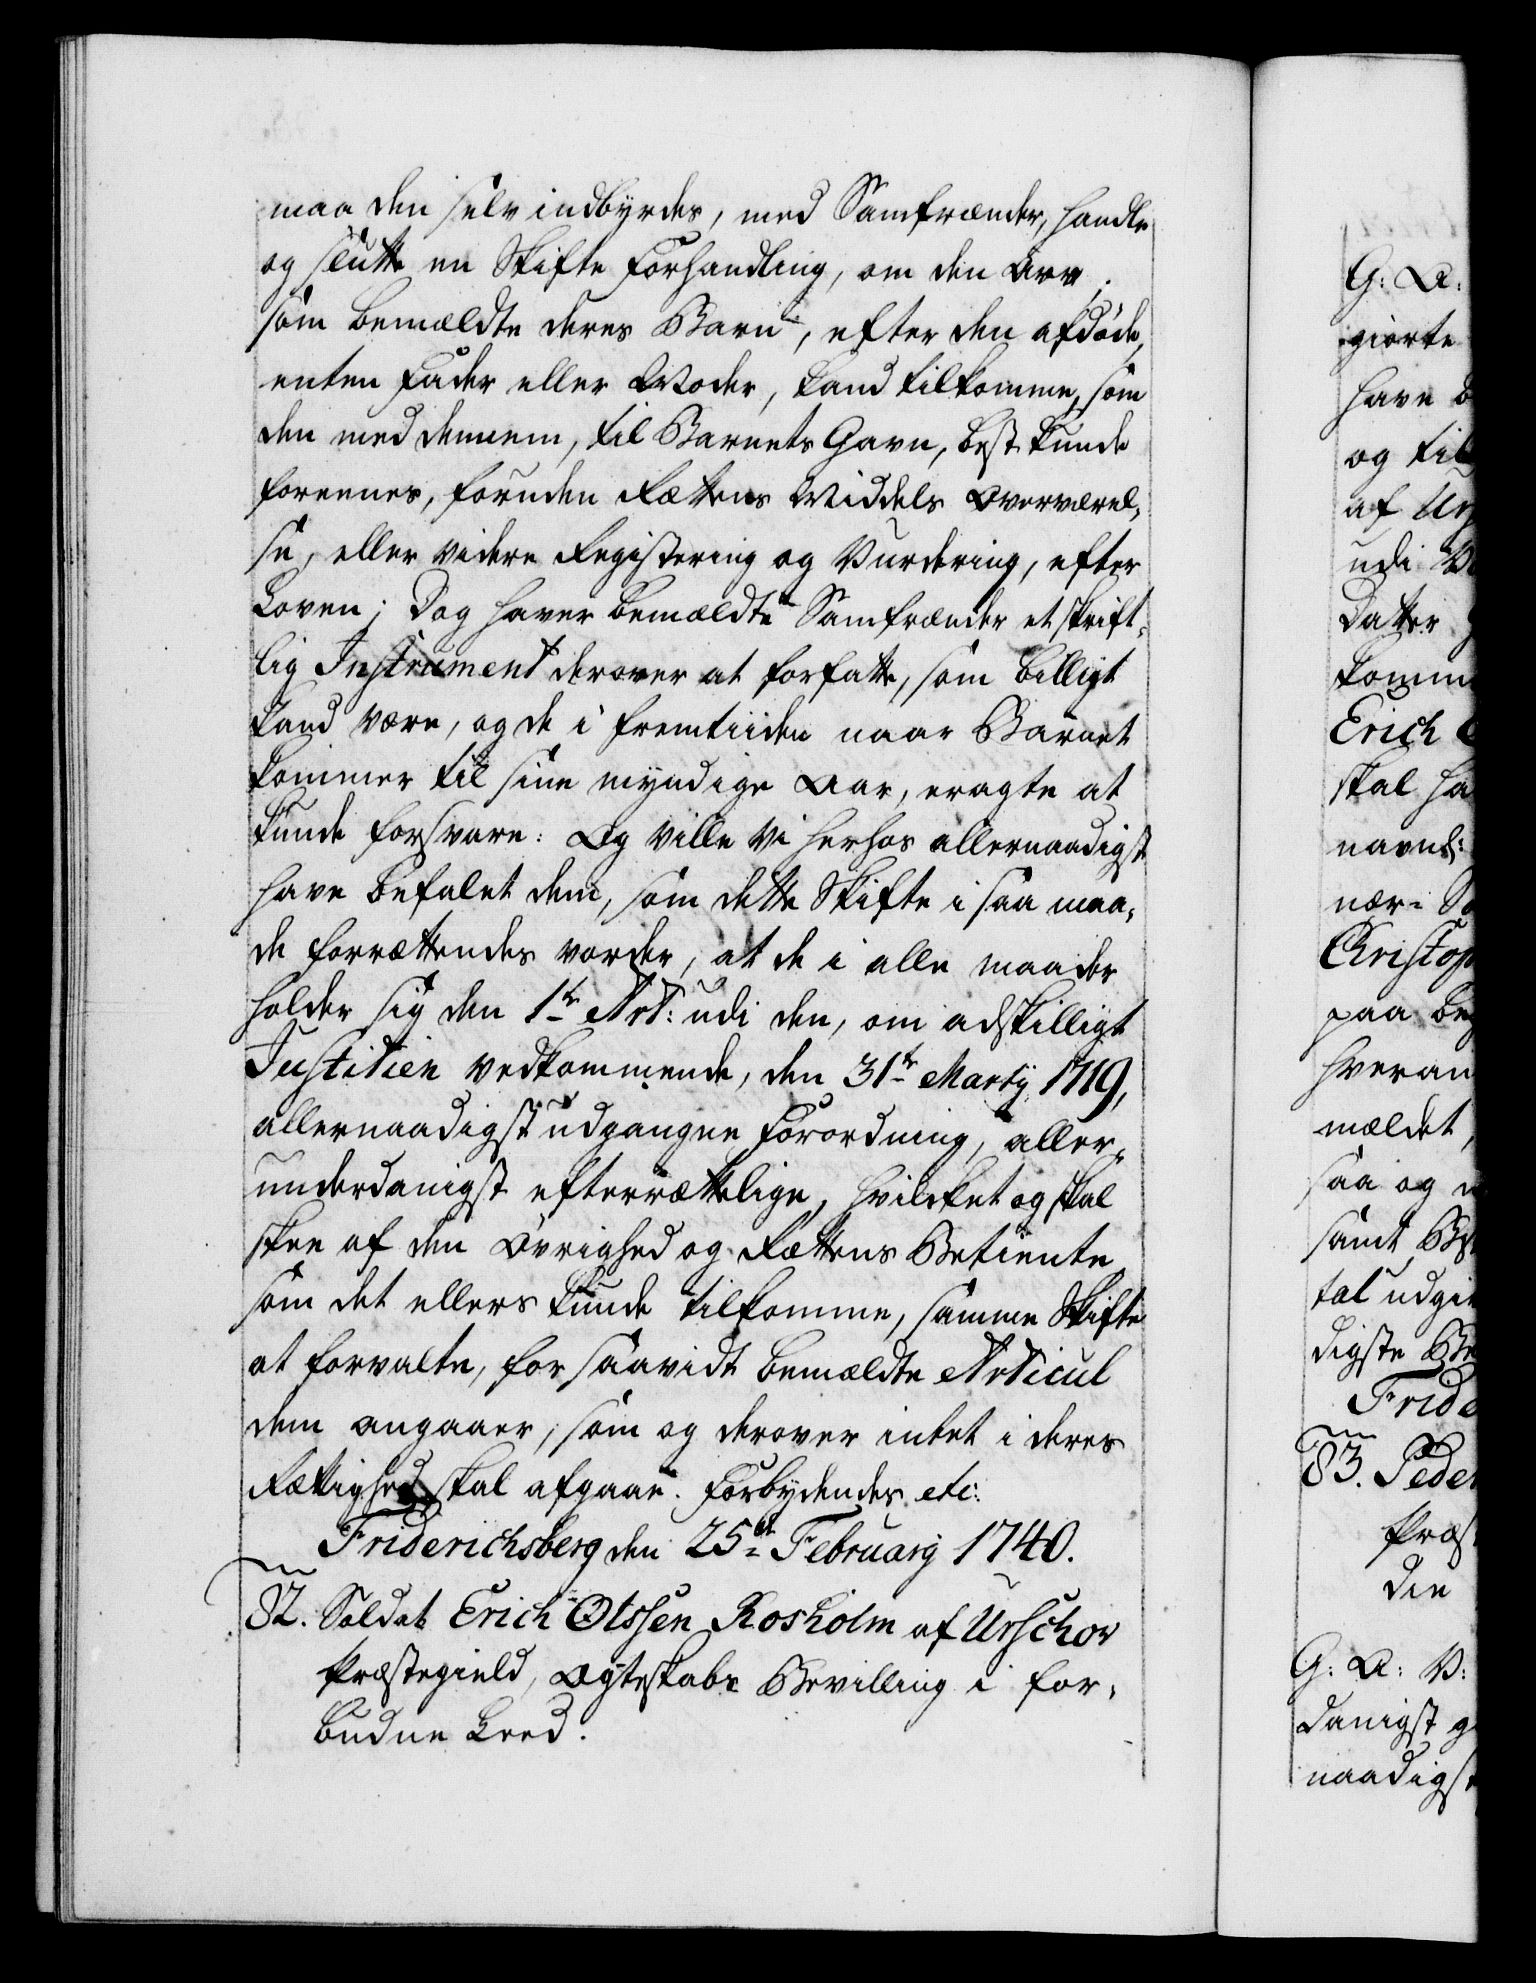 maa den selv indbÿrdes, med Samfrænder, handle
og slutte en Skifte Forhandling, om den Arv,
som bemældte deres Barn, efter den afdøde,
enten Fader eller Moder, kand tilkomme, som
den med dennem, til Barnets Gavn, best kunde
forennes, foruden Rættens Middels Overværel-
se, eller videre Registering og Vurdering, efter
Loven; Dog haver bemældte Samfrænder et skrift-
lig Instrument derover at forfatte, som billigt
kand være, og de i fremtiiden naar Barnet
kommer til sine myndige Aar, eragte at
kunde forsvare: Og ville Vi herhos allernaadigst
have befalet dem, som dette Skifte i saa maa-
de forrættendes vorder, at de i alle maader
holder sig den 1te Art: udi den, om adskilligt
Justitien vedkommende, den 31te Martij 1719,
allernaadigst udgangne Forordning, aller-
underdanigst efterrættelige, hvilcket og skal
skee af den Øvrighed og Rættens Betiente
som det ellers kunde tilkomme, samme Skifte
at forvalte, for saavidt bemældte Articul
dem angaaer, som og derover intet i deres
Rættighed skal afgaae. Forbydendes etc:
Friderichsberg den 25de Februarij 1740.
82. Soldat Erich Olssen Rosholm af Urschov
Præstegield, Ægteskabs Bevilling i for-
budne Leed.
G: A:
giorte
have
og til
af
udi
Datter
komm
Erich
skal ha
navnl:
nær-
Christop
paa
hveran
mældet,
saa og
samt
tal udgi
digste
Fride
83. Peder
Præs
den
G: A: V:
danigst
naadigst